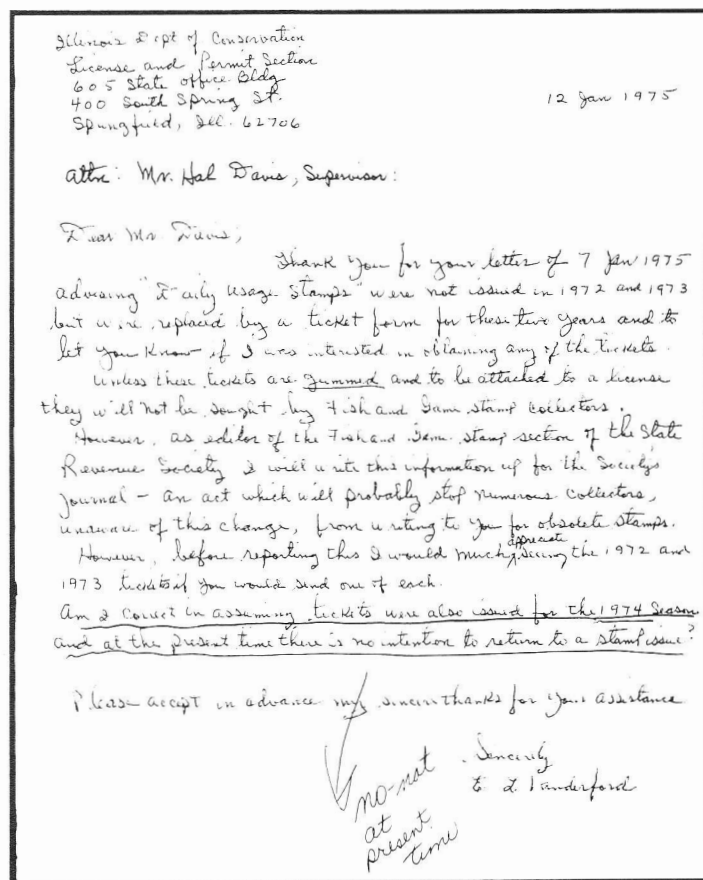 Illinois Dept of Conservation
License and Permit Section
605 State Office Bldg
400 South Spring St.
Springfield, Ill. 62706
12 Jan 1975
Attn: Mr. Hal Davis, Supervisor:
Dear Mr. Davis,
Thank you for your letter of 7 Jan 1975
advising "Daily Usage Stamps" were not issued in 1972 and 1973
but were replaced by a ticket form for these two years and to
let you know if I was interested in obtaining any of the tickets.
Unless these tickets are gummed and to be attached to a license
they will not be sought by Fish and Game stamp collectors.
However, as editor of the Fish and Game stamp section of the State
Revenue Society I will write this information up for the Society's
Journal - an act which will probably stop numerous collectors,
unaware of this change, from writing to you for obsolete stamps.
However, before reporting this I would much appreciate seeing the 1972 and
1973 tickets if you would send one of each.
Am I correct in assuming tickets were also issued for the 1974 Season
and at the present time there is no intention to return to a stamp issue?
Please accept in advance my sincere thanks for your assistance
Sincerely
E. L. Vanderford
no-not
at
present
time